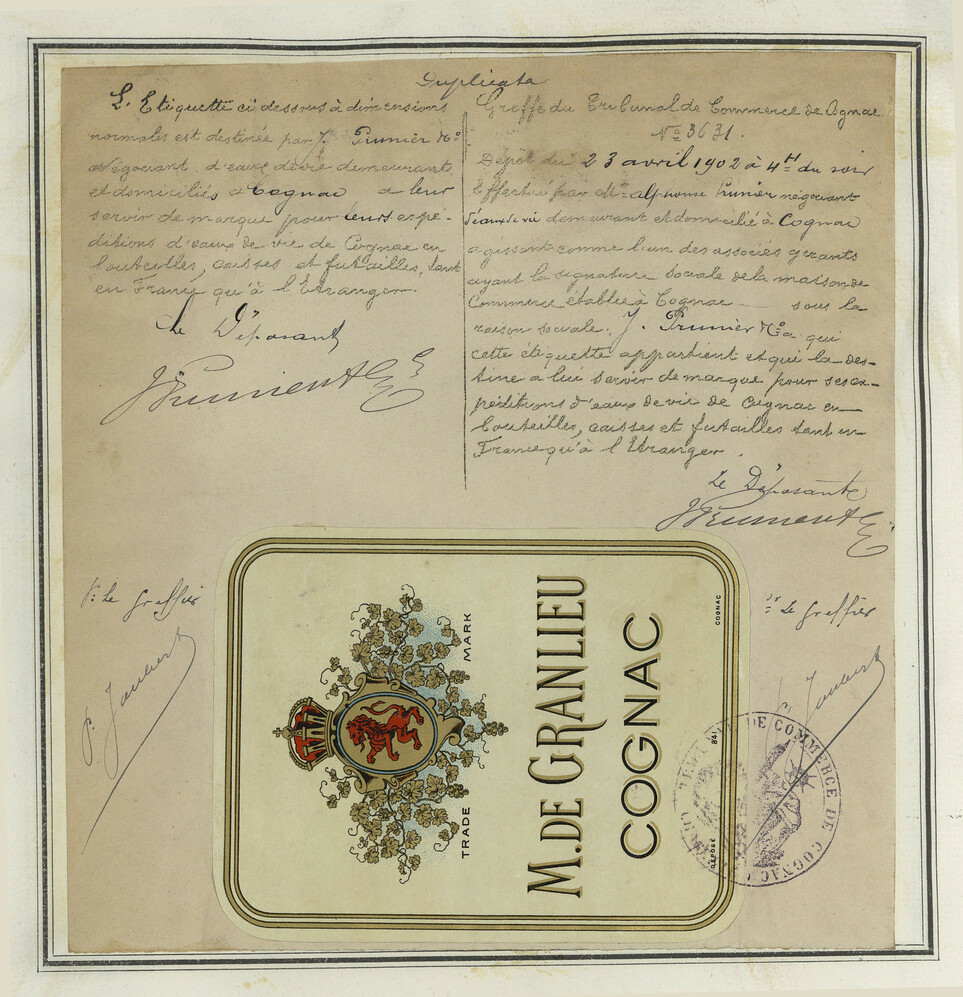 Duplicata
L'Etiquette ci dessous à dimensions
normales est destinée par J. Prunier & Cº
Négociant d'eaux de vie demeurant
et domiciliés à Cognac à leur
servir de marque pour leurs expé-
ditions d'eaux de vie de Cognac en
bouteilles, caisses et futailles, tant
en France qu'à l'Etranger.
Le Déposant
J Prunier & Cie
Greffe du Tribunal de Commerce de Cognac
Nº 3631.
Dépôt du 23 avril 1902 à 4 H du soir
Effectué par Mr Alphonse Prunier négociant
d'eaux de vie demeurant et domicilié à Cognac
agissant comme l'un des associés gérants
ayant la signature sociale de la maison de
Commerce établie à Cognac — sous la
raison sociale: J. Prunier & Cº qui
cette étiquette appartient et qui la des-
tine à lui servir de marque pour ses ex-
péditions d'eaux de vie de Cognac en
bouteilles, caisses et futailles tant en
France qu'à l'Etranger.
Le Déposant
J Prunier & Cie
Le Greffier
P. Joubert
Le Greffier
Joubert
TRADE MARK
M. DE GRANLIEU
COGNAC
DÉPOSÉ 84
COGNAC
DE COMMERCE DE COGNAC